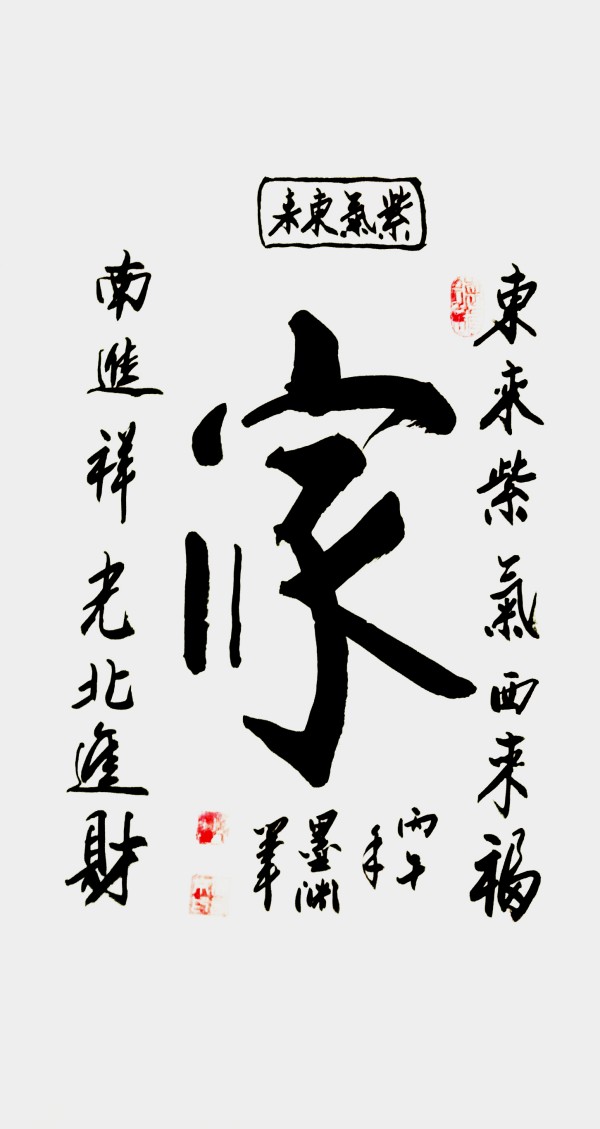 紫氣東来
東来紫氣西来福
家
南進祥光北進財
丙午
年
墨渊
筆